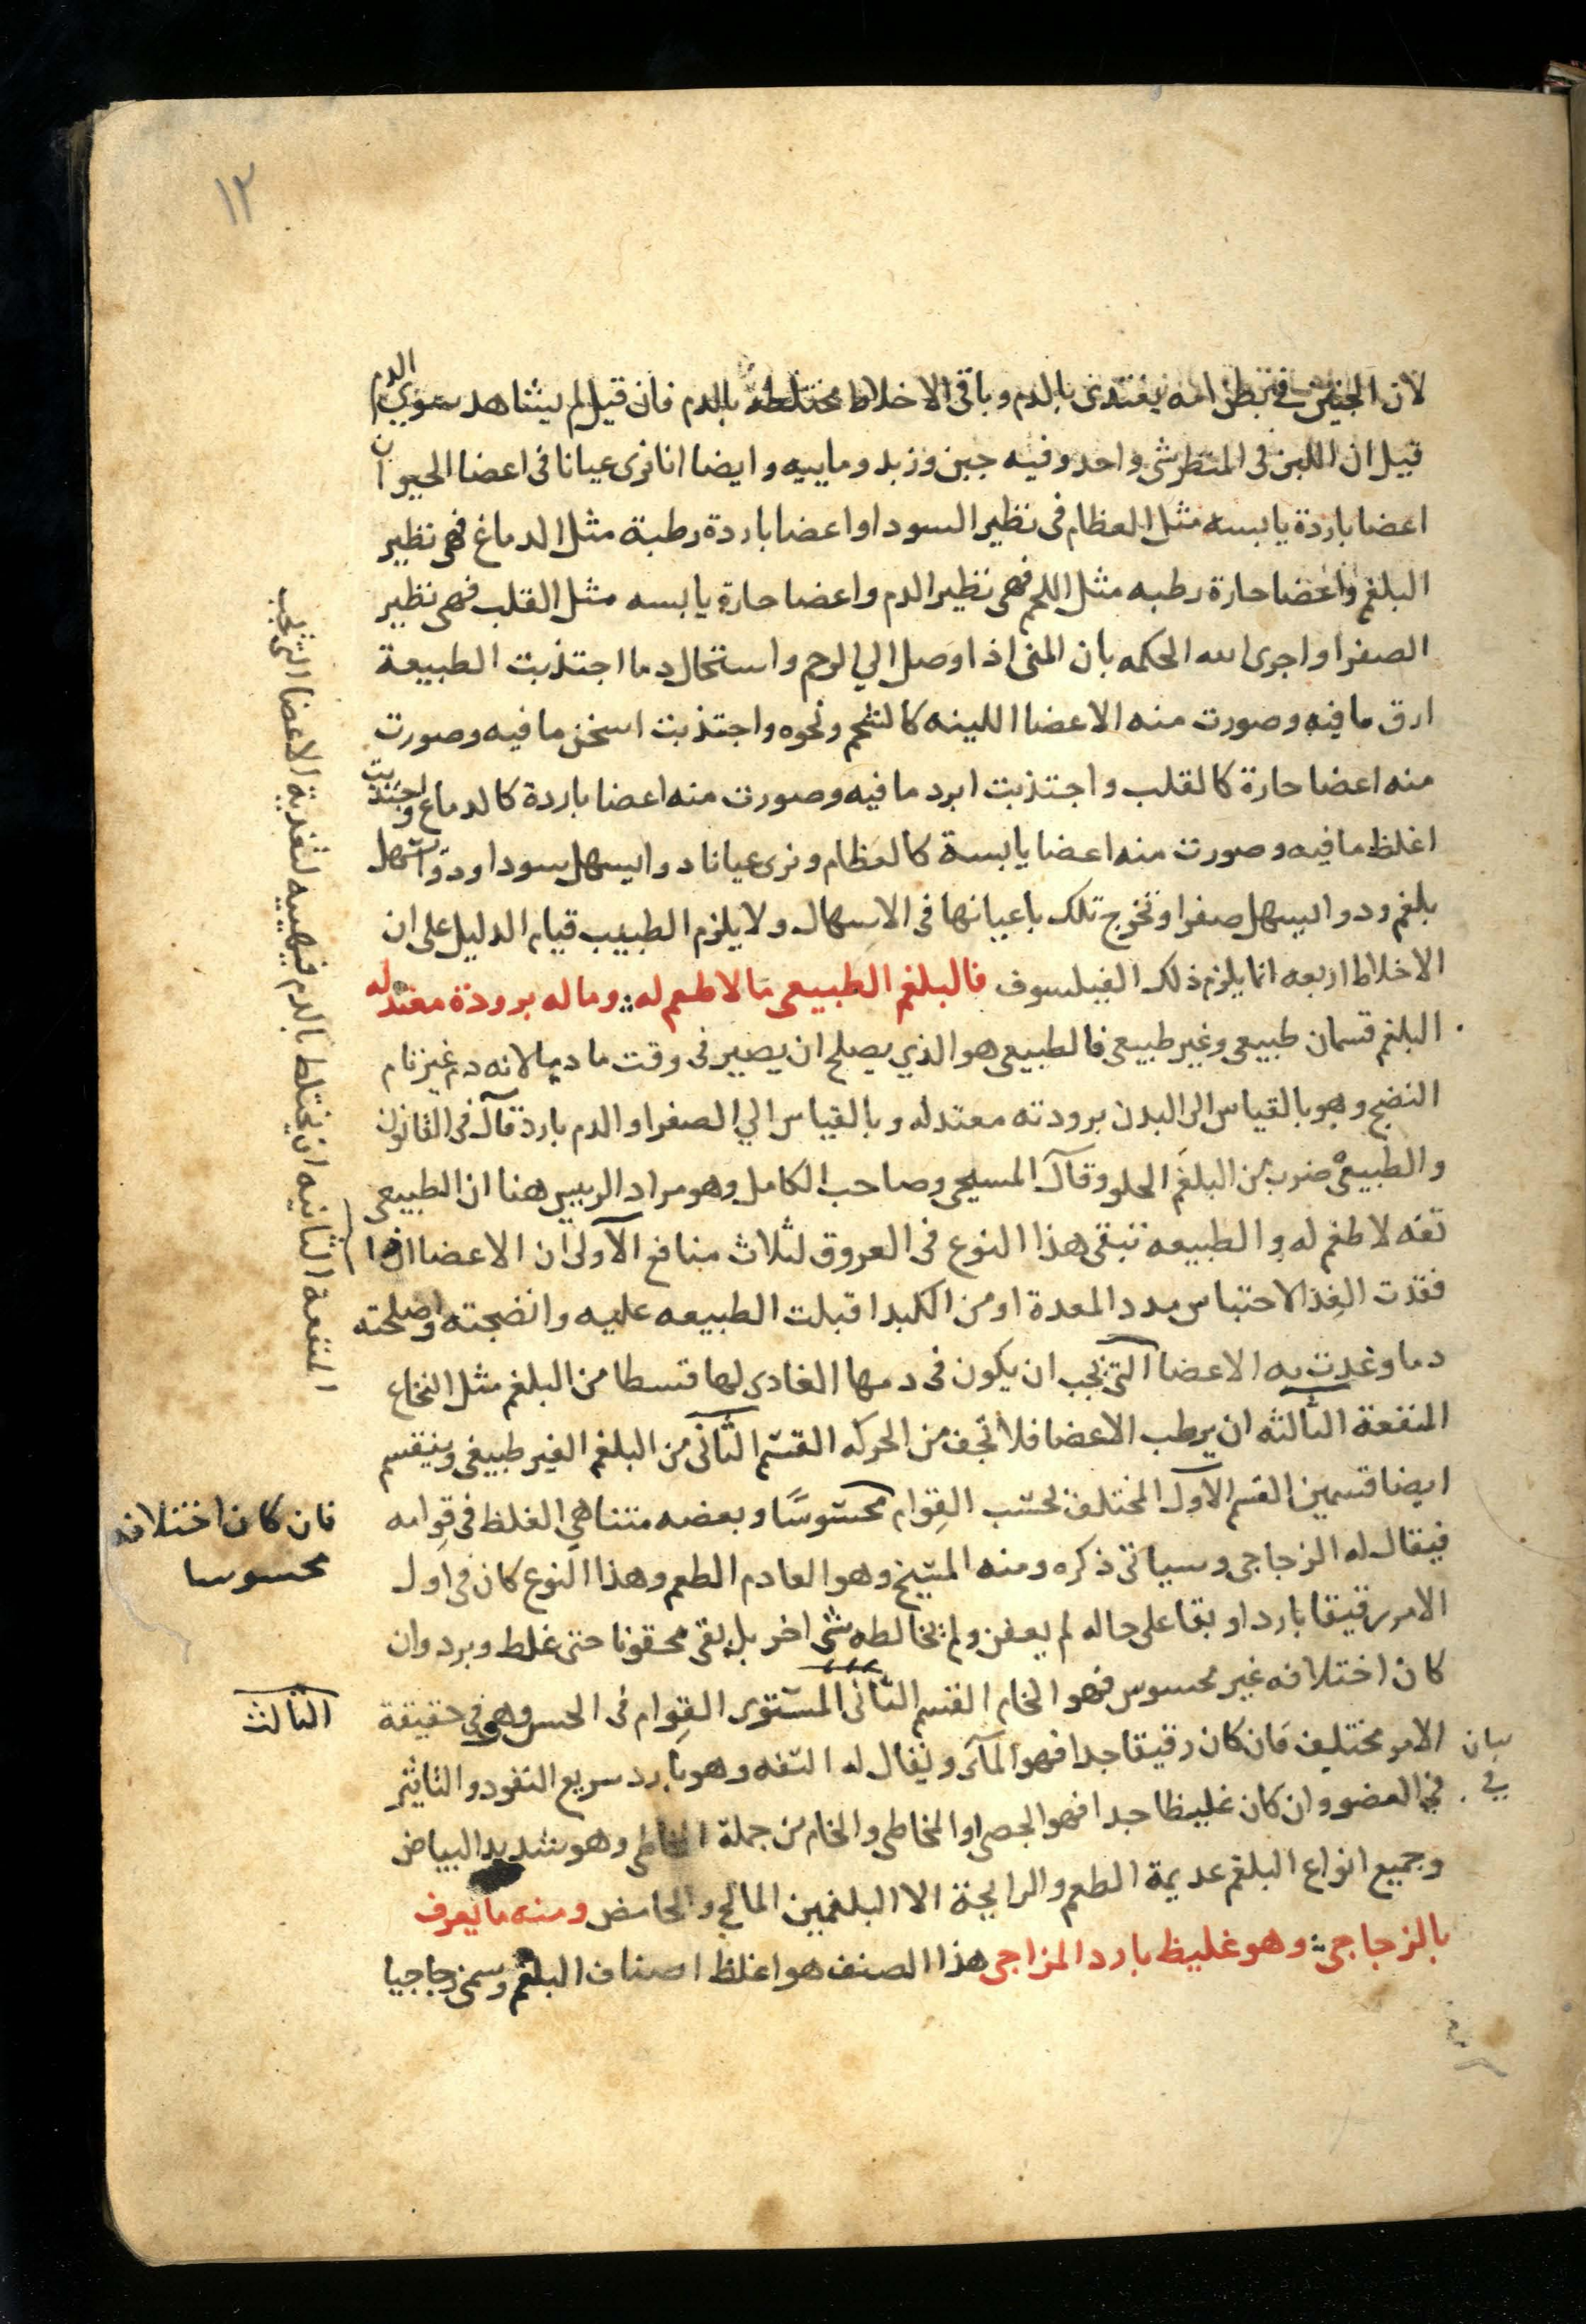 ١٢
لان الجنين في بطن امه يغتدى بالدم وباقى الاخلاط مختلطة بالدم فان قيل لم يشاهد سوى الدم
قيل ان اللبن فى المنظر شى واحد وفيه جبن وزبد وماييه وايضا انا نرى عيانا فى اعضا الحيوان
اعضا باردة يابسه مثل العظام فى نظير السودا واعضا باردة رطبة مثل الدماغ فهى نظير
البلغم واعضا حارة رطبه مثل اللحم فهى نظير الدم واعضا حارة يابسه مثل القلب فهى نظير
الصفرا واجرى الله الحكمه بان المنى اذا وصل الي الرحم واستحال دما اجتذبت الطبيعة
ارق ما فيه وصورت منه الاعضا اللينه كالشحم ونحوه واجتذبت اسخن ما فيه وصورت
منه اعضا حارة كالقلب واجتذبت ابرد ما فيه وصورت منه اعضا باردة كالدماغ واجتذبت
اغلظ ما فيه وصورت منه اعضا يابسة كالعظام ونرى عيانا دوا يسهل سودا ودوا يسهل
بلغم ودوا يسهل صفرا وتخرج تلك باعيانها فى الاسهال ولا يلزم الطبيب قيام الدليل على ان
الاخلاط اربعه انما يلزم ذلك الفيلسوف فالبلغم الطبيعى ما لا طعم له وما له برودة معتدله
البلغم قسمان طبيعى وغير طبيعى فالطبيعى هو الذي يصلح ان يصير فى وقت ما دما لانه دم غير تام
النضج وهو بالقياس الى البدن برودته معتدله وبالقياس الي الصفرا والدم بارد قال فى القانون
والطبيعى ضرب من البلغم الحلو وقال المسيحى وصاحب الكامل وهو مراد الرييس هنا ان الطبيعى
تفه لا طعم له والطبيعه تبقى هذا النوع فى العروق لثلاث منافع الاولى ان الاعضا اذا
فقدت الغذا لاحتباس مدد المعدة او من الكبد اقبلت الطبيعه عليه وانضجته واصلحته
دما وغدت به الاعضا التى يجب ان يكون فى دمها الغادى لها قسطا من البلغم مثل النخاع
المنفعة الثالثه ان يرطب الاعضا فلا تجف من الحركه القسم الثانى من البلغم الغير طبيعى وينقسم
ايضا قسمين القسم الاول المختلف بحسب القوام محسوسا وبعضه متناهي الغلظ فى قوامه
فيقال له الزجاجى وسياتى ذكره ومنه المسيخ وهو العادم الطعم وهذا النوع كان فى اول
الامر رقيقا باردا وبقا على حاله لم يعفن ولم يخالطه شى اخر بل بقى محقونا حتى غلط وبرد وان
كان اختلافه غير محسوس فهو الخام القسم الثانى المستوى القوام فى الحس وهو فى حقيقة
الامر مختلف فان كان رقيقا جدا فهو المآى ويقال له التفه وهو بارد سريع النفود والتاثير
في العضو وان كان غليظا جدا فهو الجصى او المخاطى والخام من جملة المخاطى وهو شديد البياض
وجميع انواع البلغم عديمة الطعم والرايحة الا البلغمين المالح والحامض ومنه ما يعرف
بالزجاجى وهو غليظ بارد المزاجى هذا الصنف هو اغلظ اصناف البلغم وسمى زجاجيا
المنفعة الثانيه ان يختلط بالدم فيهييه لتغدية الاعضا التى يجب
فان كان اختلافه
محسوسا
الثالث
بيان
في